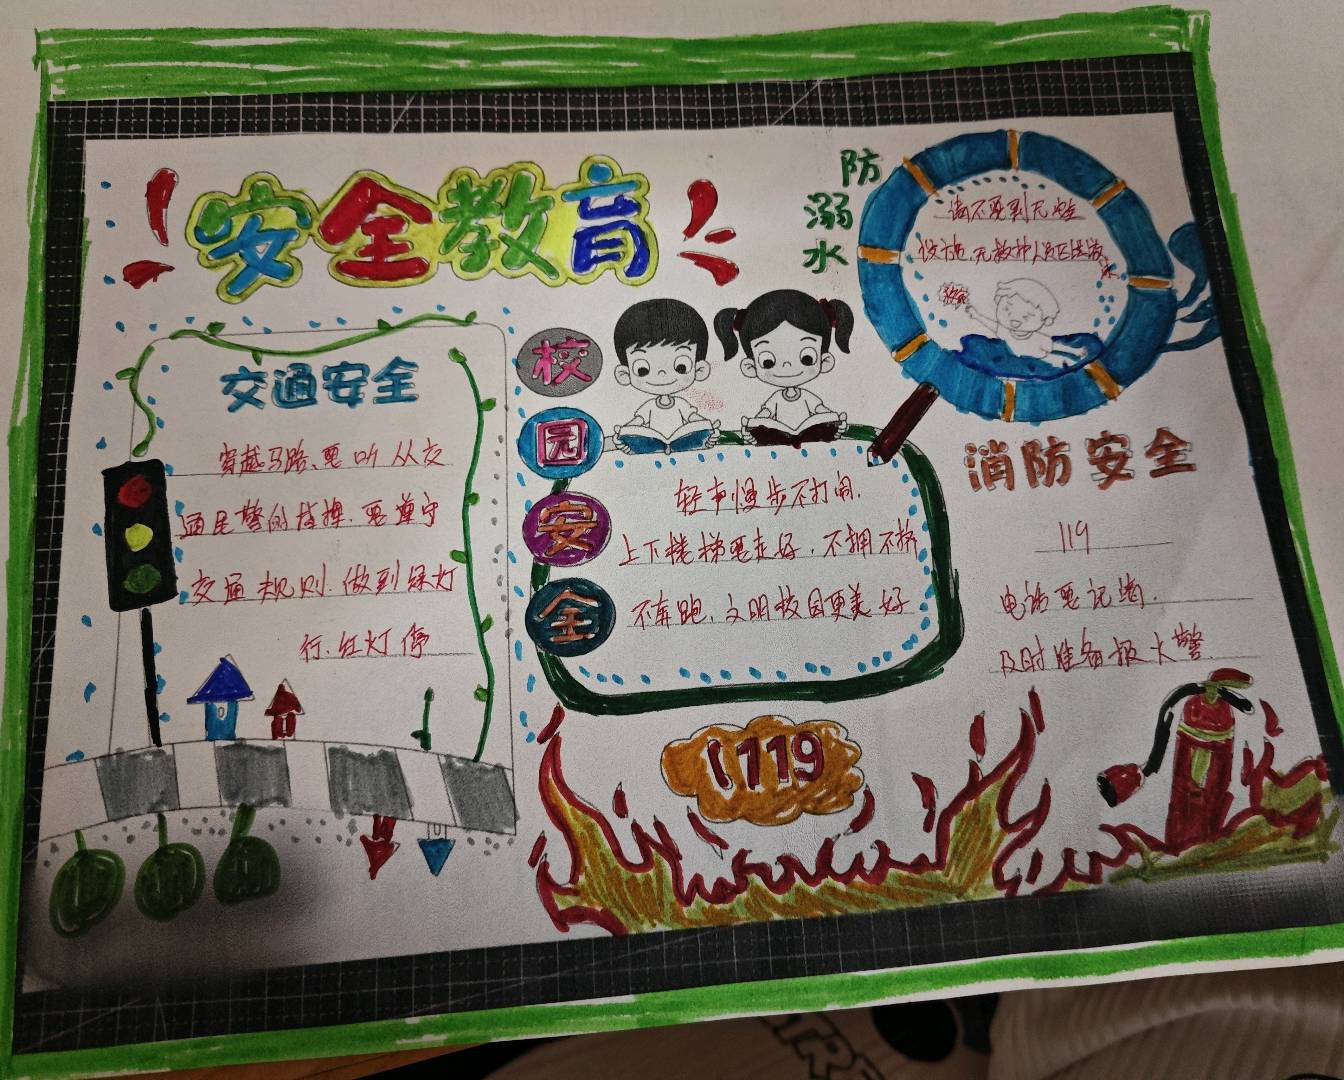 安全教育
交通安全
穿越马路、要听从交
通民警的指挥.要遵守
交通规则.做到绿灯
行.红灯停
校园安全
轻声慢步不打闹.
上下楼梯要走好.不拥不挤
不奔跑、文明校园更美好
防溺水
请不要到无安全
设施.无救护人员区域游
泳
救命
消防安全
119
电话要记清.
及时准备报火警
119